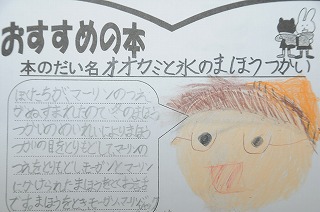 おすすめの本
本のだい名オオカミと氷のまほうつかい
ぼくたちがマーリンのつえ
がぬすまれたので冬のまほう
つかいのめいれいにより
の目をとりもどしてマーリンの
つえをとりもどしモーガンとマーリン
にかけられたまほうをとく
です。まほうをときモーガン